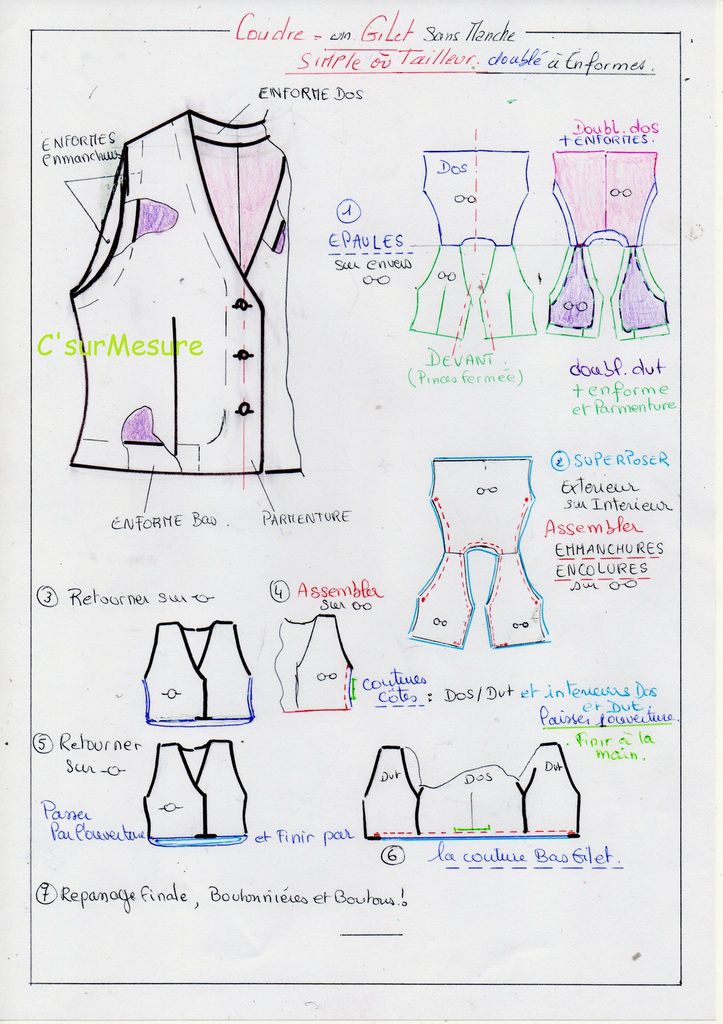 Coudre = un Gilet Sans Manche
SIMPLE où Tailleur. doublé à Enformes.
ENFORME DOS
ENFORMES
Enmanchures
C'surMesure
ENFORME Bas.
PARMENTURE
1
EPAULES
sur envers
Dos
DEVANT.
(Pinces fermée)
Doubl. dos
+ ENFORMES.
doubl. dvt
+ enforme
et Parmenture
2 SUPERPOSER
Exterieur
sur Interieur
Assembler
EMMANCHURES
ENCOLURES
sur
3 Retourner sur
4 Assembler
sur
Coutures
côtes : Dos/Dvt et intérieurs Dos
et Dvt.
Laisser 1 ouverture.
. Finir à la
main.
5 Retourner
sur
Passer
Par l'ouverture
et Finir par
Dvt
DOS
Dvt
6 la couture Bas Gilet.
7 Repassage Finale, Boutonnières et Boutons!